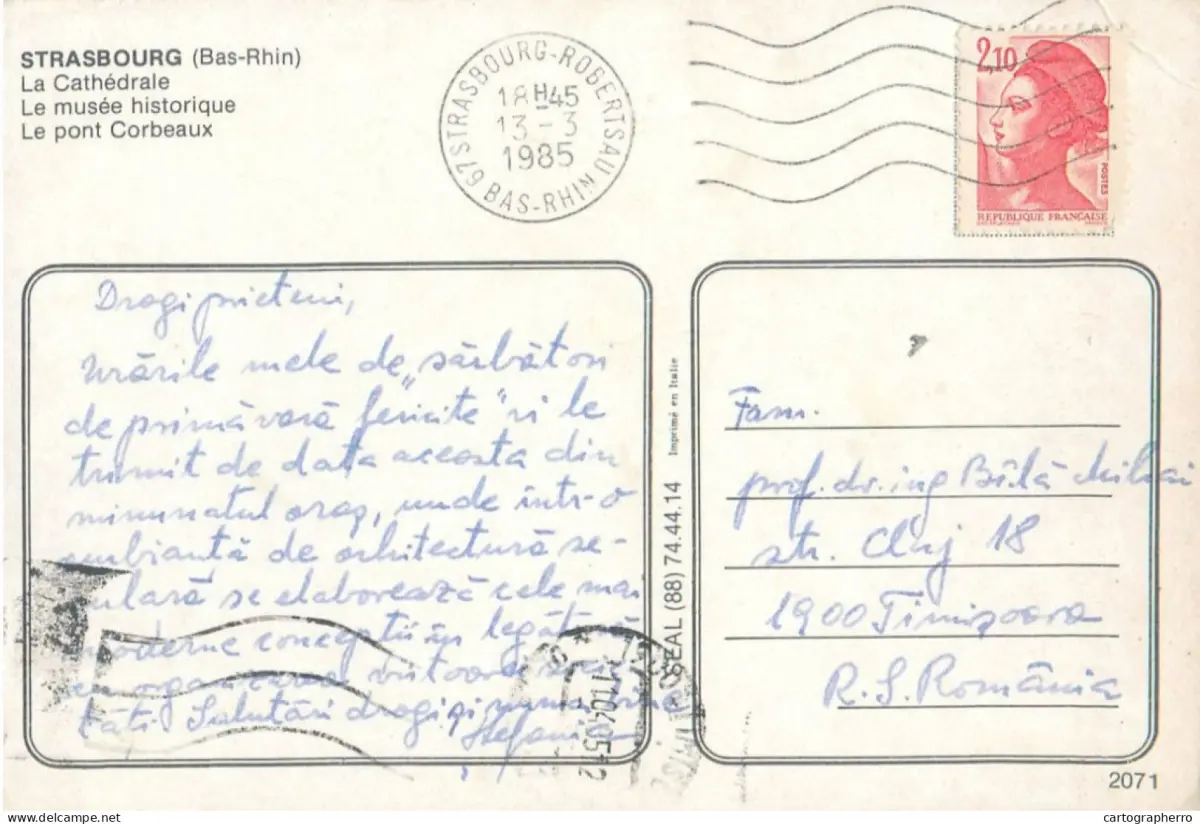 STRASBOURG (Bas-Rhin)
La Cathédrale
Le musée historique
Le pont Corbeaux
67 STRASBOURG-ROBERTSAU
18H45
13-3
1985
BAS-RHIN
2,10
POSTES
REPUBLIQUE FRANÇAISE
Dragi prieteni,
Urările mele de „sărbători
de primăvară fericite" vi le
trimit de data aceasta din
minunatul oraș, unde într-o
ambianță de arhitectură se-
culară se elaborează cele mai
moderne concepții în legătură
cu organizarea viitoarei
tăți. Salutări dragi și numai bine
Ștefania
SEAL (88) 74.44.14 Imprimé en Italie
Fam.
prof. dr. ing Bîlă Mihai
str. Cluj 18
1900 Timișoara
R. S. România
2071
cartographerro